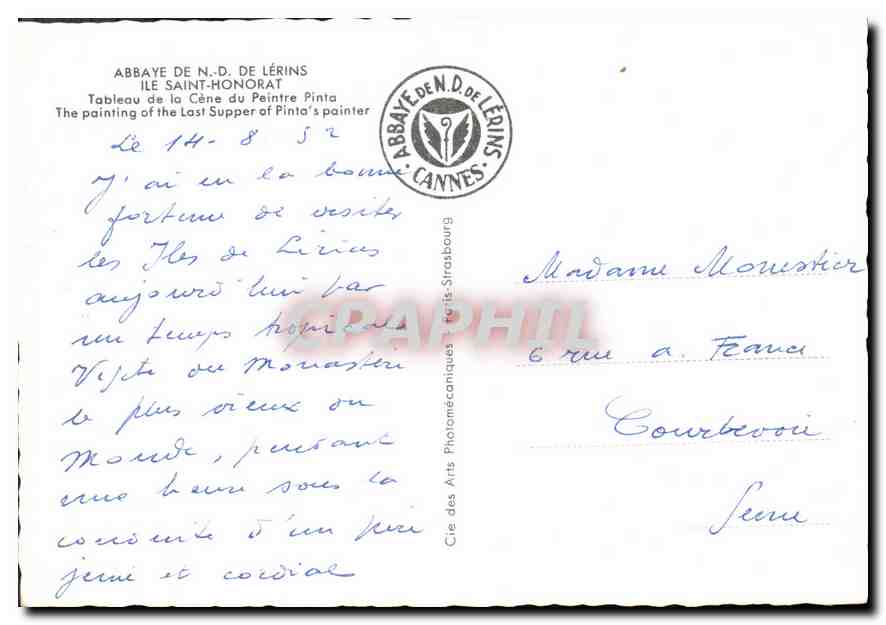 ABBAYE DE N.-D. DE LÉRINS
ILE SAINT-HONORAT
Tableau de la Cène du Peintre Pinta
The painting of the Last Supper of Pinta's painter
ABBAYE DE N.D. DE LÉRINS
· CANNES ·
Le 14 - 8 52
J'ai eu la bonne
fortune de visiter
les Iles de Lérins
aujourd'hui par
un temps tropical
Visite du Monastère
le plus vieux du
Monde, pendant
une heure sous la
conduite d'un père
jeune et cordial
Cie des Arts Photomécaniques Paris-Strasbourg
CPAPHIL
Madame Monestier
6 rue A. France
Courbevoie
Seine